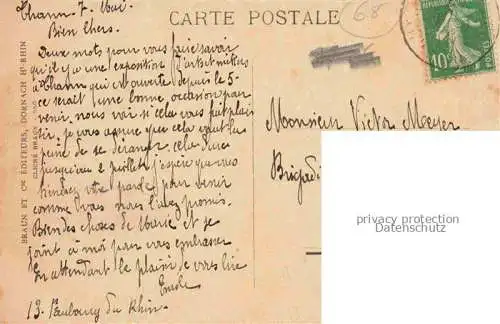 CARTE POSTALE
BRAUN ET Cie ÉDITEURS, DORNACH Ht-RHIN
Thann 7. Mai
Bien chers.
Deux mots pour vous faire savoir
qu'il y a une exposition d'arts et métiers
à Thann qui est ouverte depuis le 5
ce serait une bonne occasion pour
venir, nous voir si cela vous fait plaisir
je vous assure que cela vaut la
peine de se déranger, cela dure
jusqu'au 2 juillet j'espère que vous
tiendrez votre parole pour venir
comme vous nous l'avez promis.
Bien des choses de et se
joint à moi pour vous embrasser
En attendant le plaisir de vous lire
Emile
13. Faubourg du Rhin
68
10
Monsieur Victor Meyer
Brigadi
privacy protection
Datenschutz